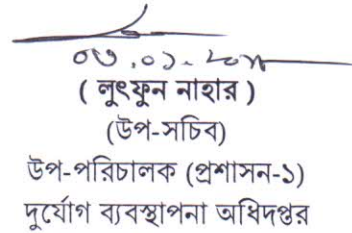 ( লুৎফুন নাহার )
(উপ-সচিব)
উপ-পরিচালক (প্রশাসন-১)
দুর্যোগ ব্যবস্থাপনা অধিদপ্তর